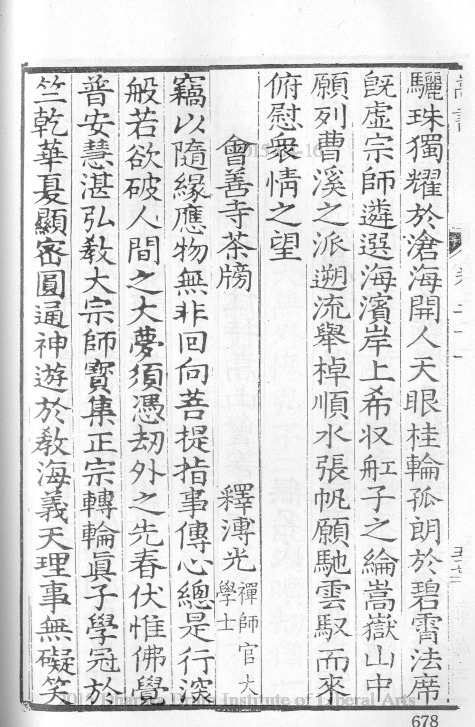 驪珠獨耀於滄海開人天眼桂輪孤朗於碧霄法席
旣虛宗師遴選海濱岸上希收舡子之綸嵩嶽山中
願列曹溪之派遡流舉棹順水張帆願馳雲馭而來
俯慰衆情之望
會善寺茶牓
釋溥光 禪師官大學士
竊以隨緣應物無非回向菩提指事傳心總是行深
般若欲破人間之大夢須憑劫外之先春伏惟佛覺
普安慧湛弘教大宗師寶集正宗轉輪眞子學冠於
竺乾華夏顯密圓通神遊於教海義天理事無礙笑
Institute of Liberal Arts
678